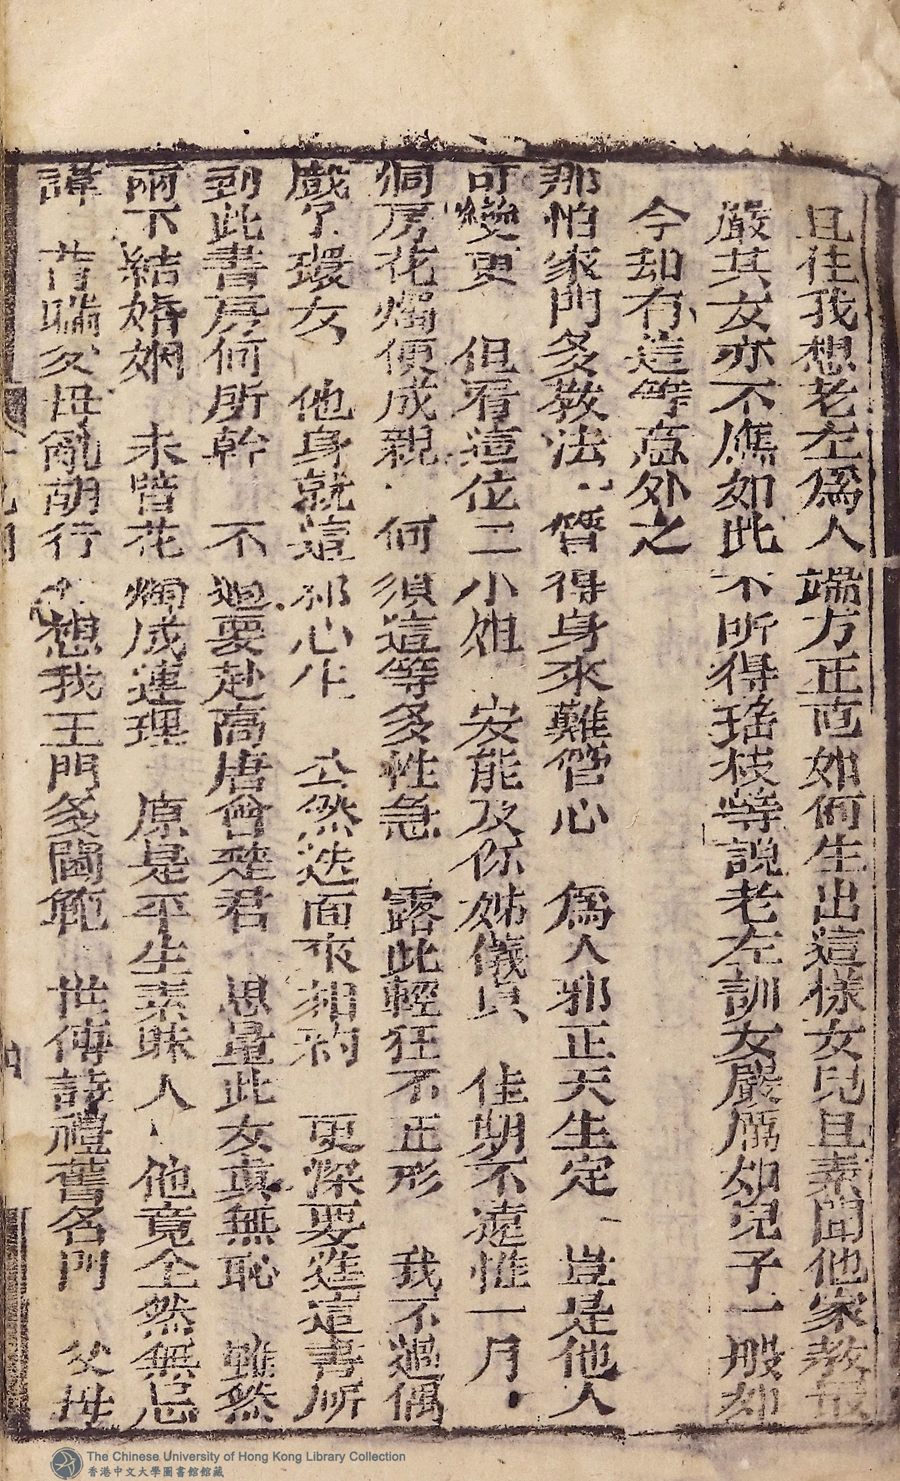 且往我想老左爲人端方正直如何生出這樣女兒且素聞他家教最
嚴其女亦不應如此不听得瑤枝等說老左訓女嚴厲如兒子一般却
今却有這等意外之
那怕家門多教法 管得身來難管心 爲人邪正天生定 豈是他人
可變更 但看這位二小姐 安能及你姊儀貝 佳期不遠惟一月
洞房花燭便成親 何須這等多性急 露此輕狂不正形 我不過偶
戲了環女 他身就這邪心生 公然迭面來相約 更深要進這書所
到此書房何所幹 不過要赴高唐會楚君 思量此女真無恥 雖然
兩下結婚姻 未曾花燭成連理 原是平生素昧人 他竟全然無忌
諱 背瞞父母亂胡行 想我王門多閫範 世傳詩禮舊名門 父母
The Chinese University of Hong Kong Library Collection
香港中文大學圖書館館藏